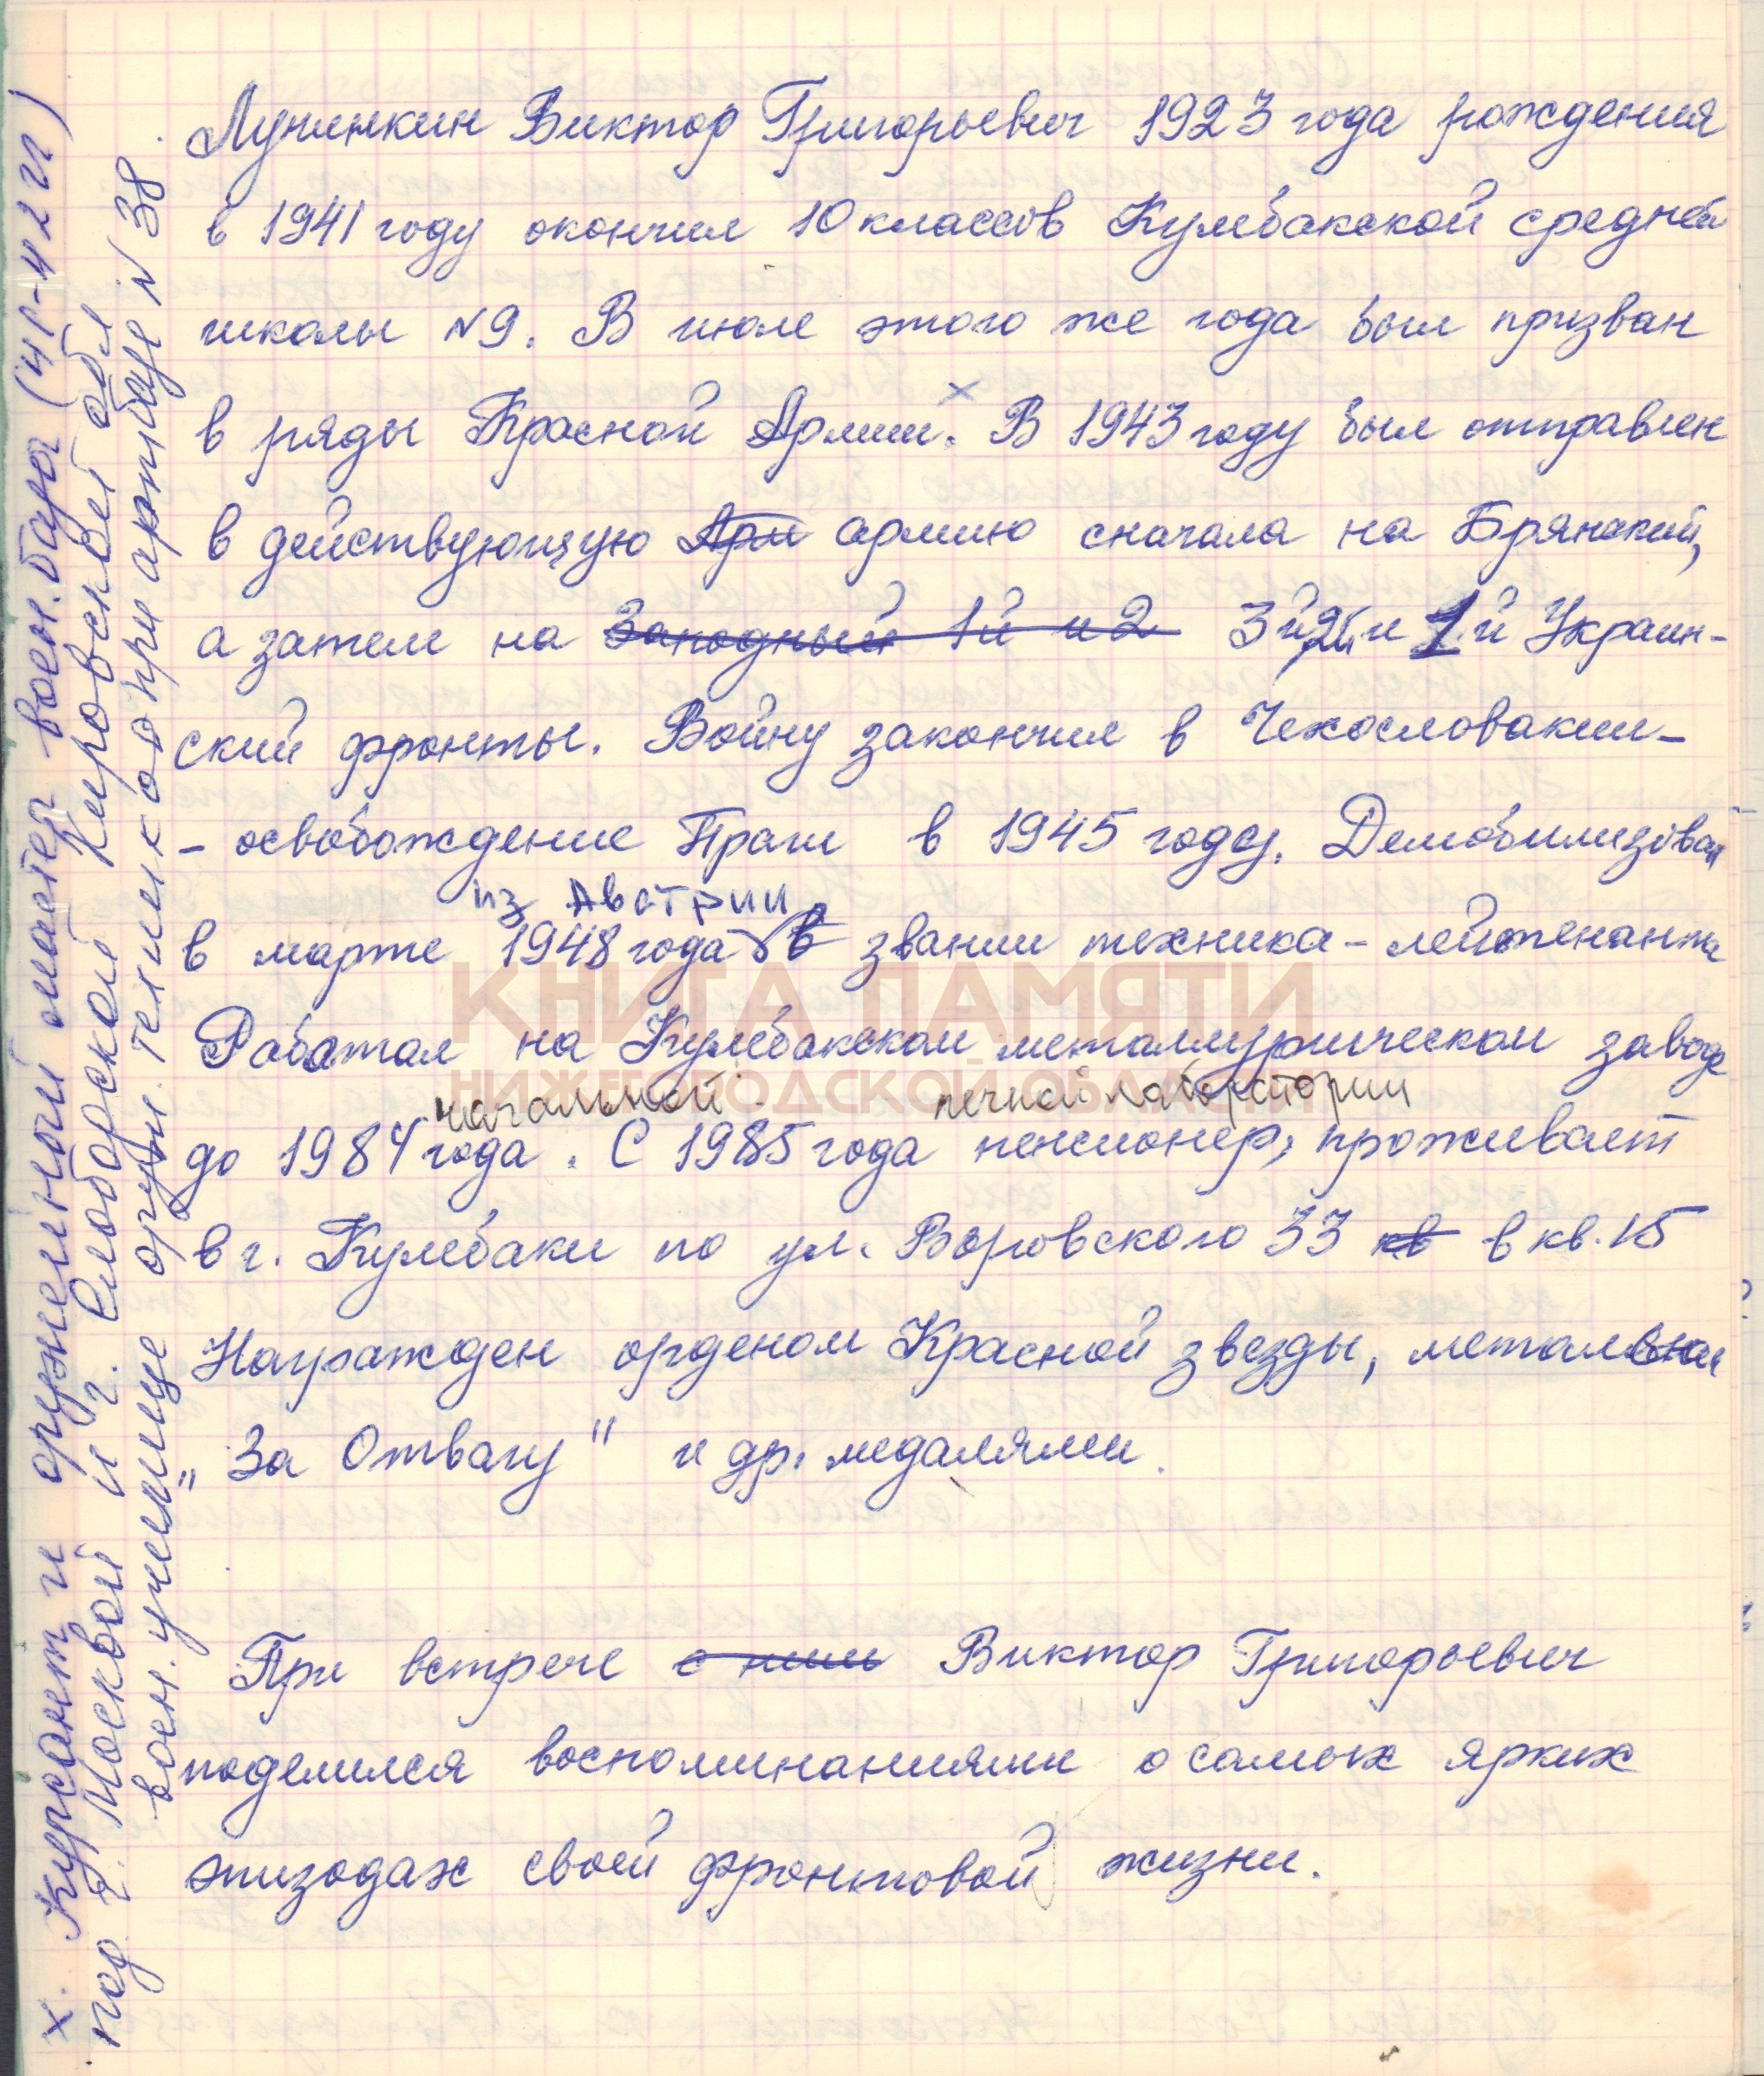 Лунинкин Виктор Григорьевич 1923 года рождения
в 1941 году окончил 10 классов Кулебакской средней
школы №9. В июле этого же года был призван
в ряды Красной Армии.х В 1943 году был отправлен
в действующую Арм армию сначала на Брянский,
а затем на Западный 1й и 2 3й, 2й и 1й Украин-
ский фронты. Войну закончил в Чехословакии-
- освобождение Праги в 1945 году. Демобилизован
из Австрии
в марте 1948 года в звании техника-лейтенанта
Работал на Кулебакском металлургическом заводе
начальной печной лаборатории
до 1984 года. С 1985 года пенсионер, проживает
в г. Кулебаки по ул. Воровского 33 кв в кв. 15
Награжден орденом Красной звезды,
"За Отвагу" и др. медалями.
При встрече с ним Виктор Григорьевич
поделился воспоминаниями о самых ярких
эпизодах своей фронтовой жизни.
х. Курсант и оружейный мастер воен.
под г. Москвой и г. Слободской Кировской обл
воен. училище оруж. техников при № 38
КНИГА ПАМЯТИ
НИЖЕГОРОДСКОЙ ОБЛАСТИ